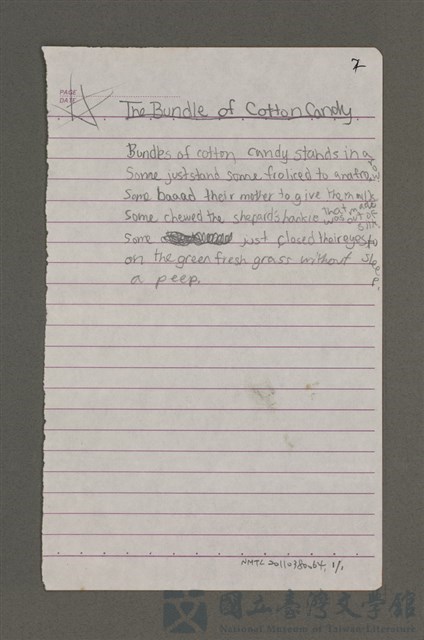 7
PAGE
DATE
The Bundle of Cotton Candy
Bundles of cotton candy stands in a row.
Some just stand some froliced to and fro,
Some baaad their mother to give them milk
Some chewed the shepard's hankie that was made out of silk
Some just closed their eyes to sleep,
on the green fresh grass without
a peep.
NMTL 20110380264, 1/1
國立臺灣文學館
National Museum of Taiwan Literature